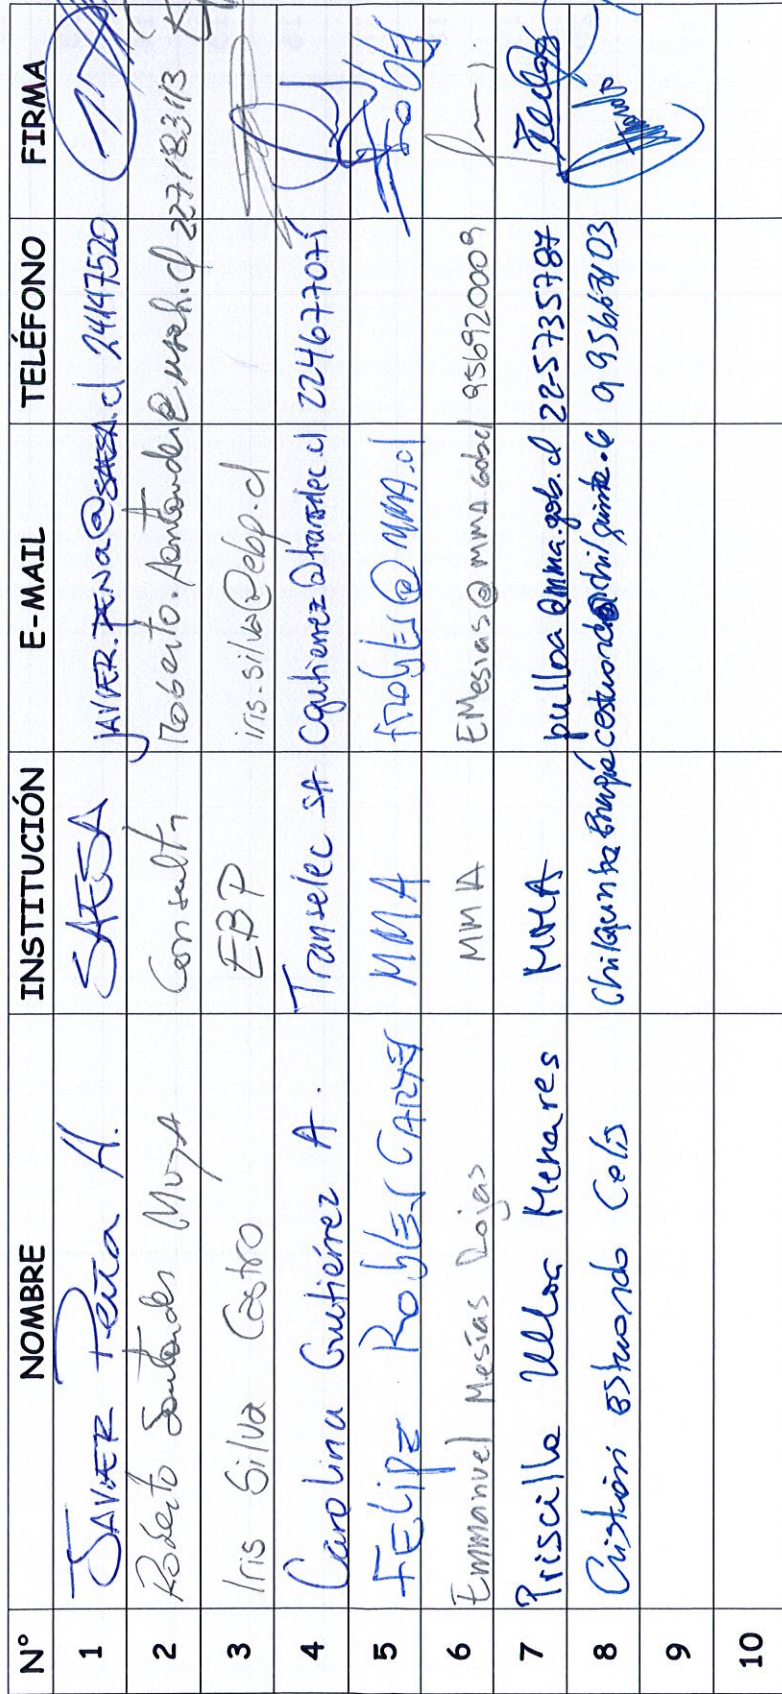 N° NOMBRE INSTITUCIÓN E-MAIL TELÉFONO FIRMA
1 JAVIER Peña A. SAESA JAVIER.PENA@SAESA.cl 24147520
2 Roberto Santander Moya Roberto.Santander@usach.cl 227183113
3 Iris Silva Castro EBP iris.silva@ebp.cl
4 Carolina Gutiérrez A. Transelec SA cgutierrez@transelec.cl 224677075
5 FELipe RoblEs MMA frobles@MMA.cl
6 Emmanuel Mesías Rojas MMA EMesias@mma.gob.cl 956920009
7 Priscilla Ulloa Menares MMA pulloa@mma.gob.cl 22-5735787
8 Cristian Estuardo Celis Chilquinta Energía
9
10